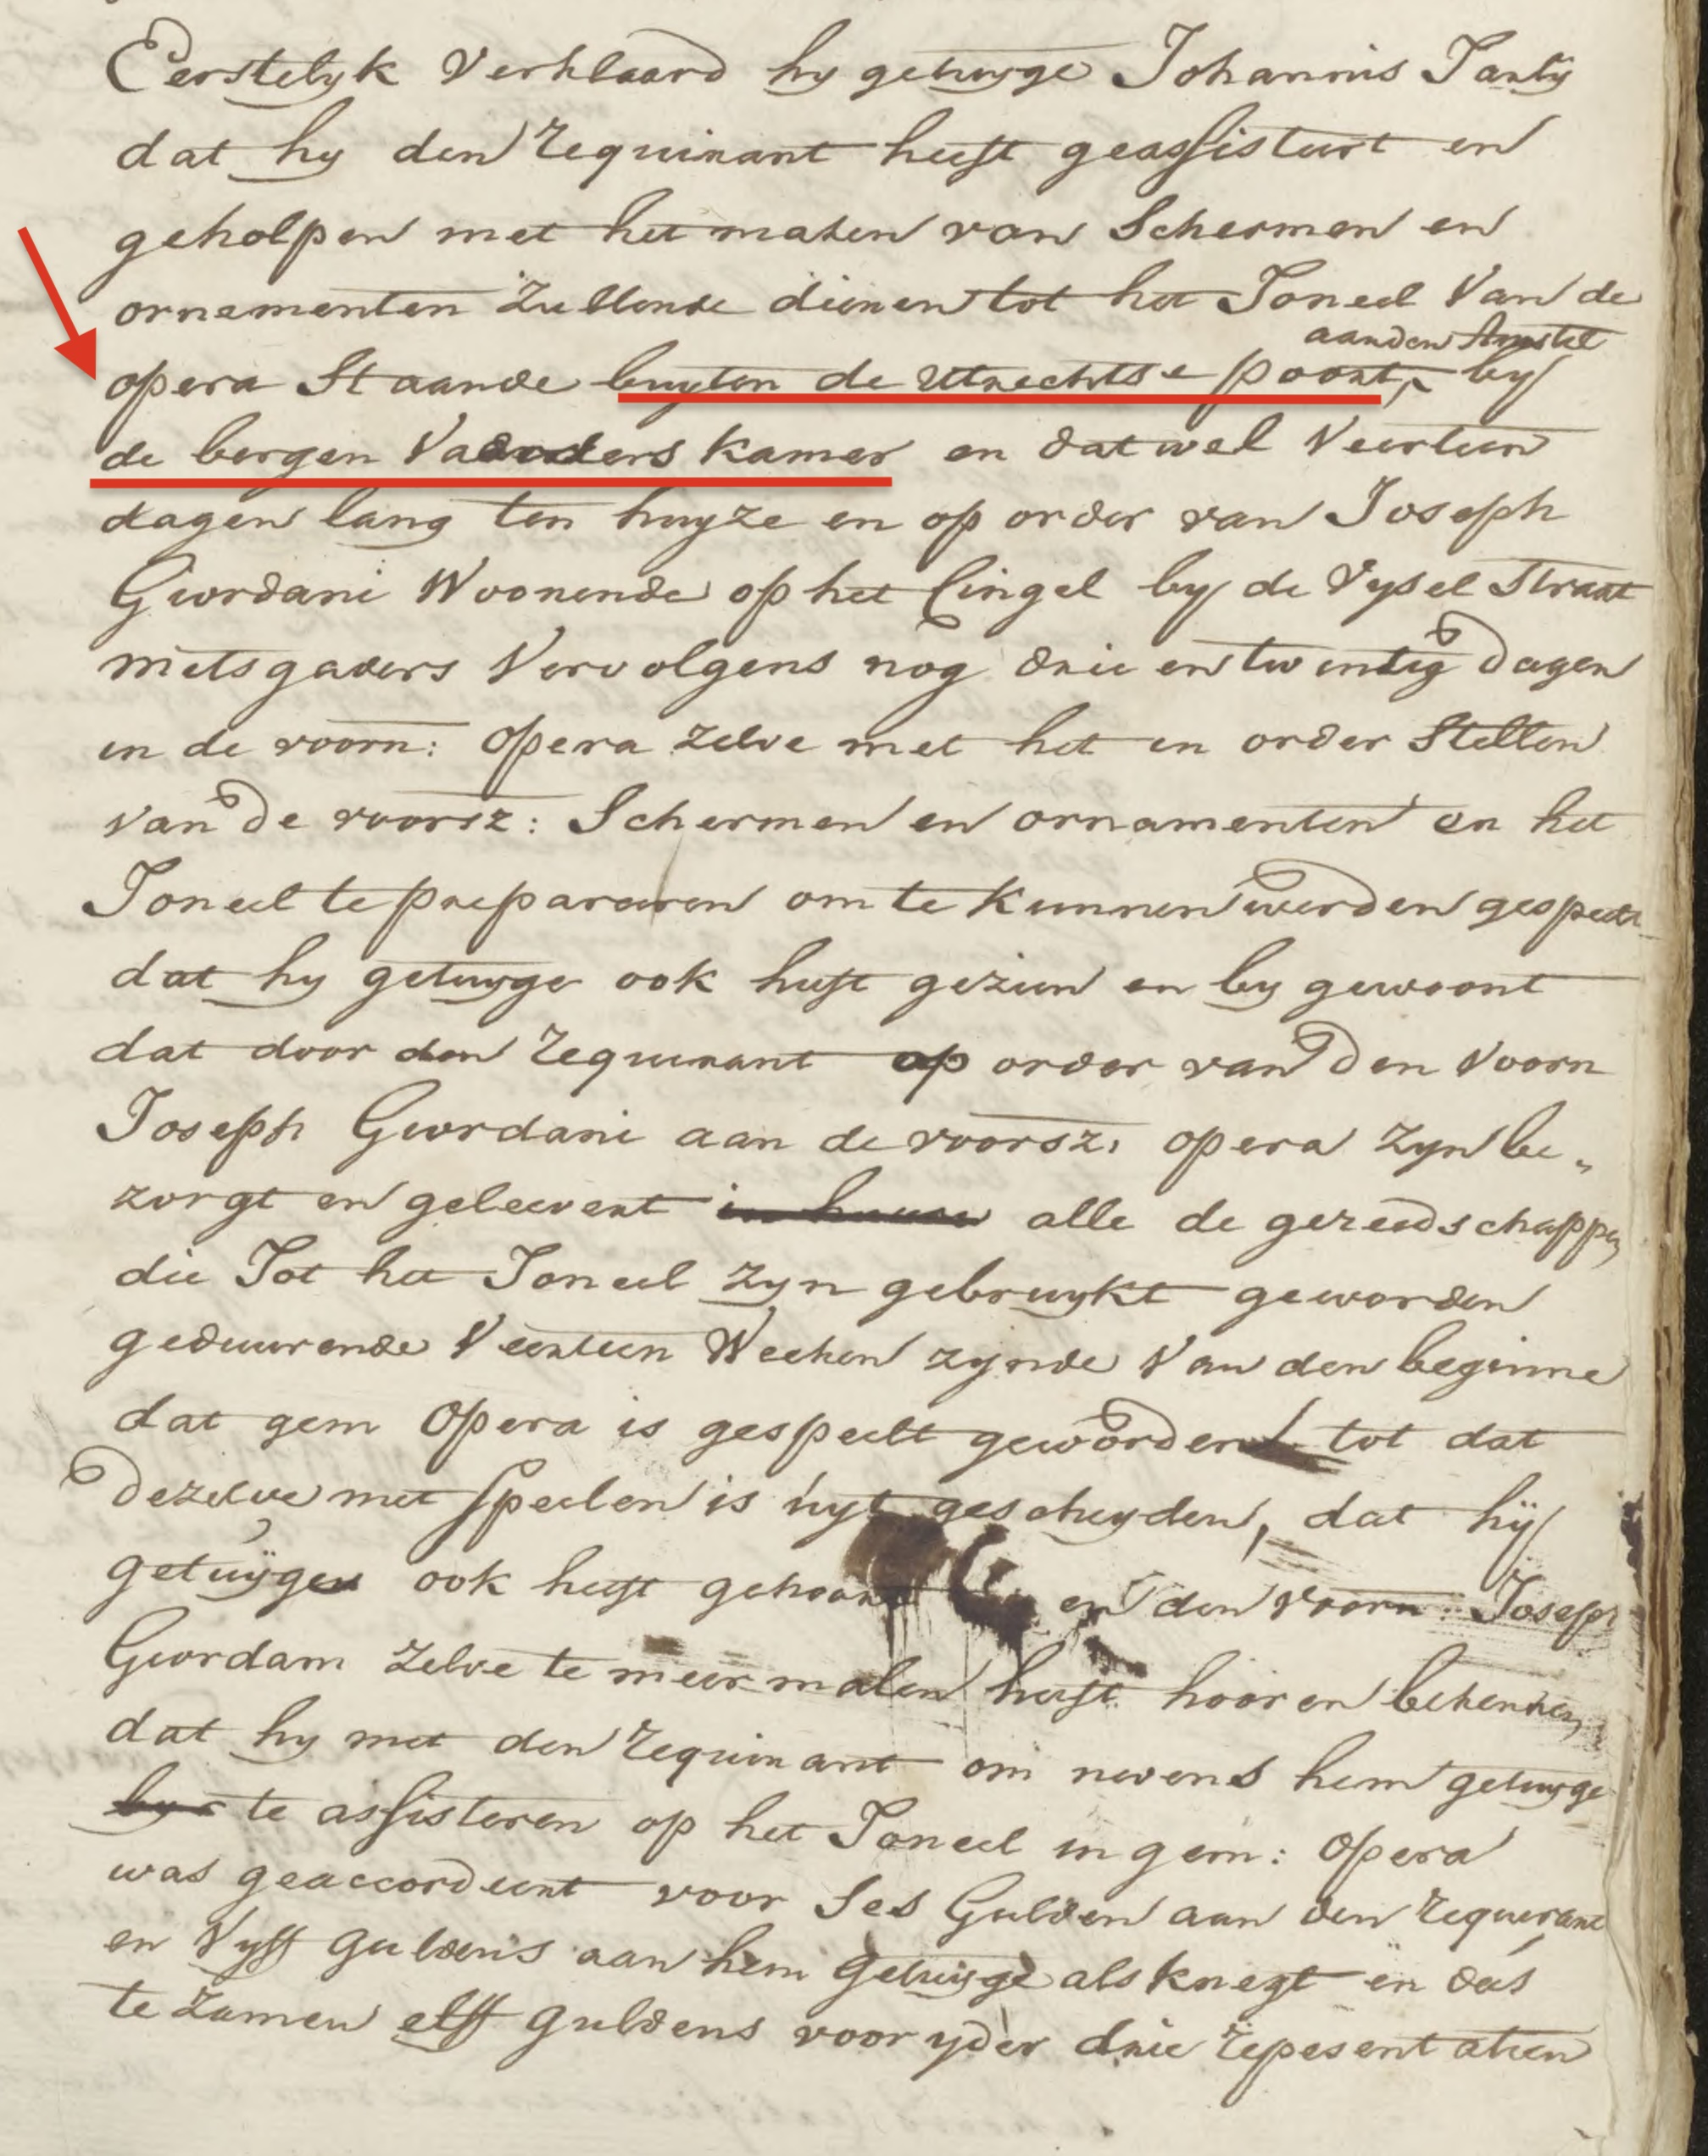 Eerstelyk Verklaard hy getuyge Johannis Tanty
dat hy den requirant heeft geassisteert en
geholpen met het maken van Schermen en
ornamenten zullende dienen tot het Toneel Van de
aanden Amstel
opera Staande buyten de Uttrechtse poort, by
de bergen Vaarders Kamer en dat wel Veertien
dagen lang ten huyze en op order van Joseph
Giordani Woonende op het Cingel by de Vysel Straat
mitsgaders Vervolgens nog drie en twintig dagen
in de voorn: opera zelve met het in order Stellen
van de voorsz: Schermen en ornamenten en het
Toneel te prepareren om te kunnen werden gespeelt
dat hy getuyge ook heeft gezien en by gewoont
dat door den requirant op order van den Voorn
Joseph Giordani aan de voorsz: opera zyn be„
zorgt en geleevert alle de gereedschappen
die Tot het Toneel zyn gebruykt geworden
geduurende Veertien Weeken zynde Van den beginne
dat gem opera is gespeelt geworden tot dat
dezelve met speelen is uyt gescheyden, dat hÿ
getuÿgen ook heeft gehoort en den voorn: Joseph
Giordani zelve te meermalen heeft hooren bekennen
dat hy met den requirant om nevens hem getuyge
te assisteren op het Toneel in gem: opera
was geaccordeert voor Ses Gulden aan den requirant
en Vyff guldens aan hem getuyge als knegt en dus
te zamen elff guldens voor yder drie repesentatien